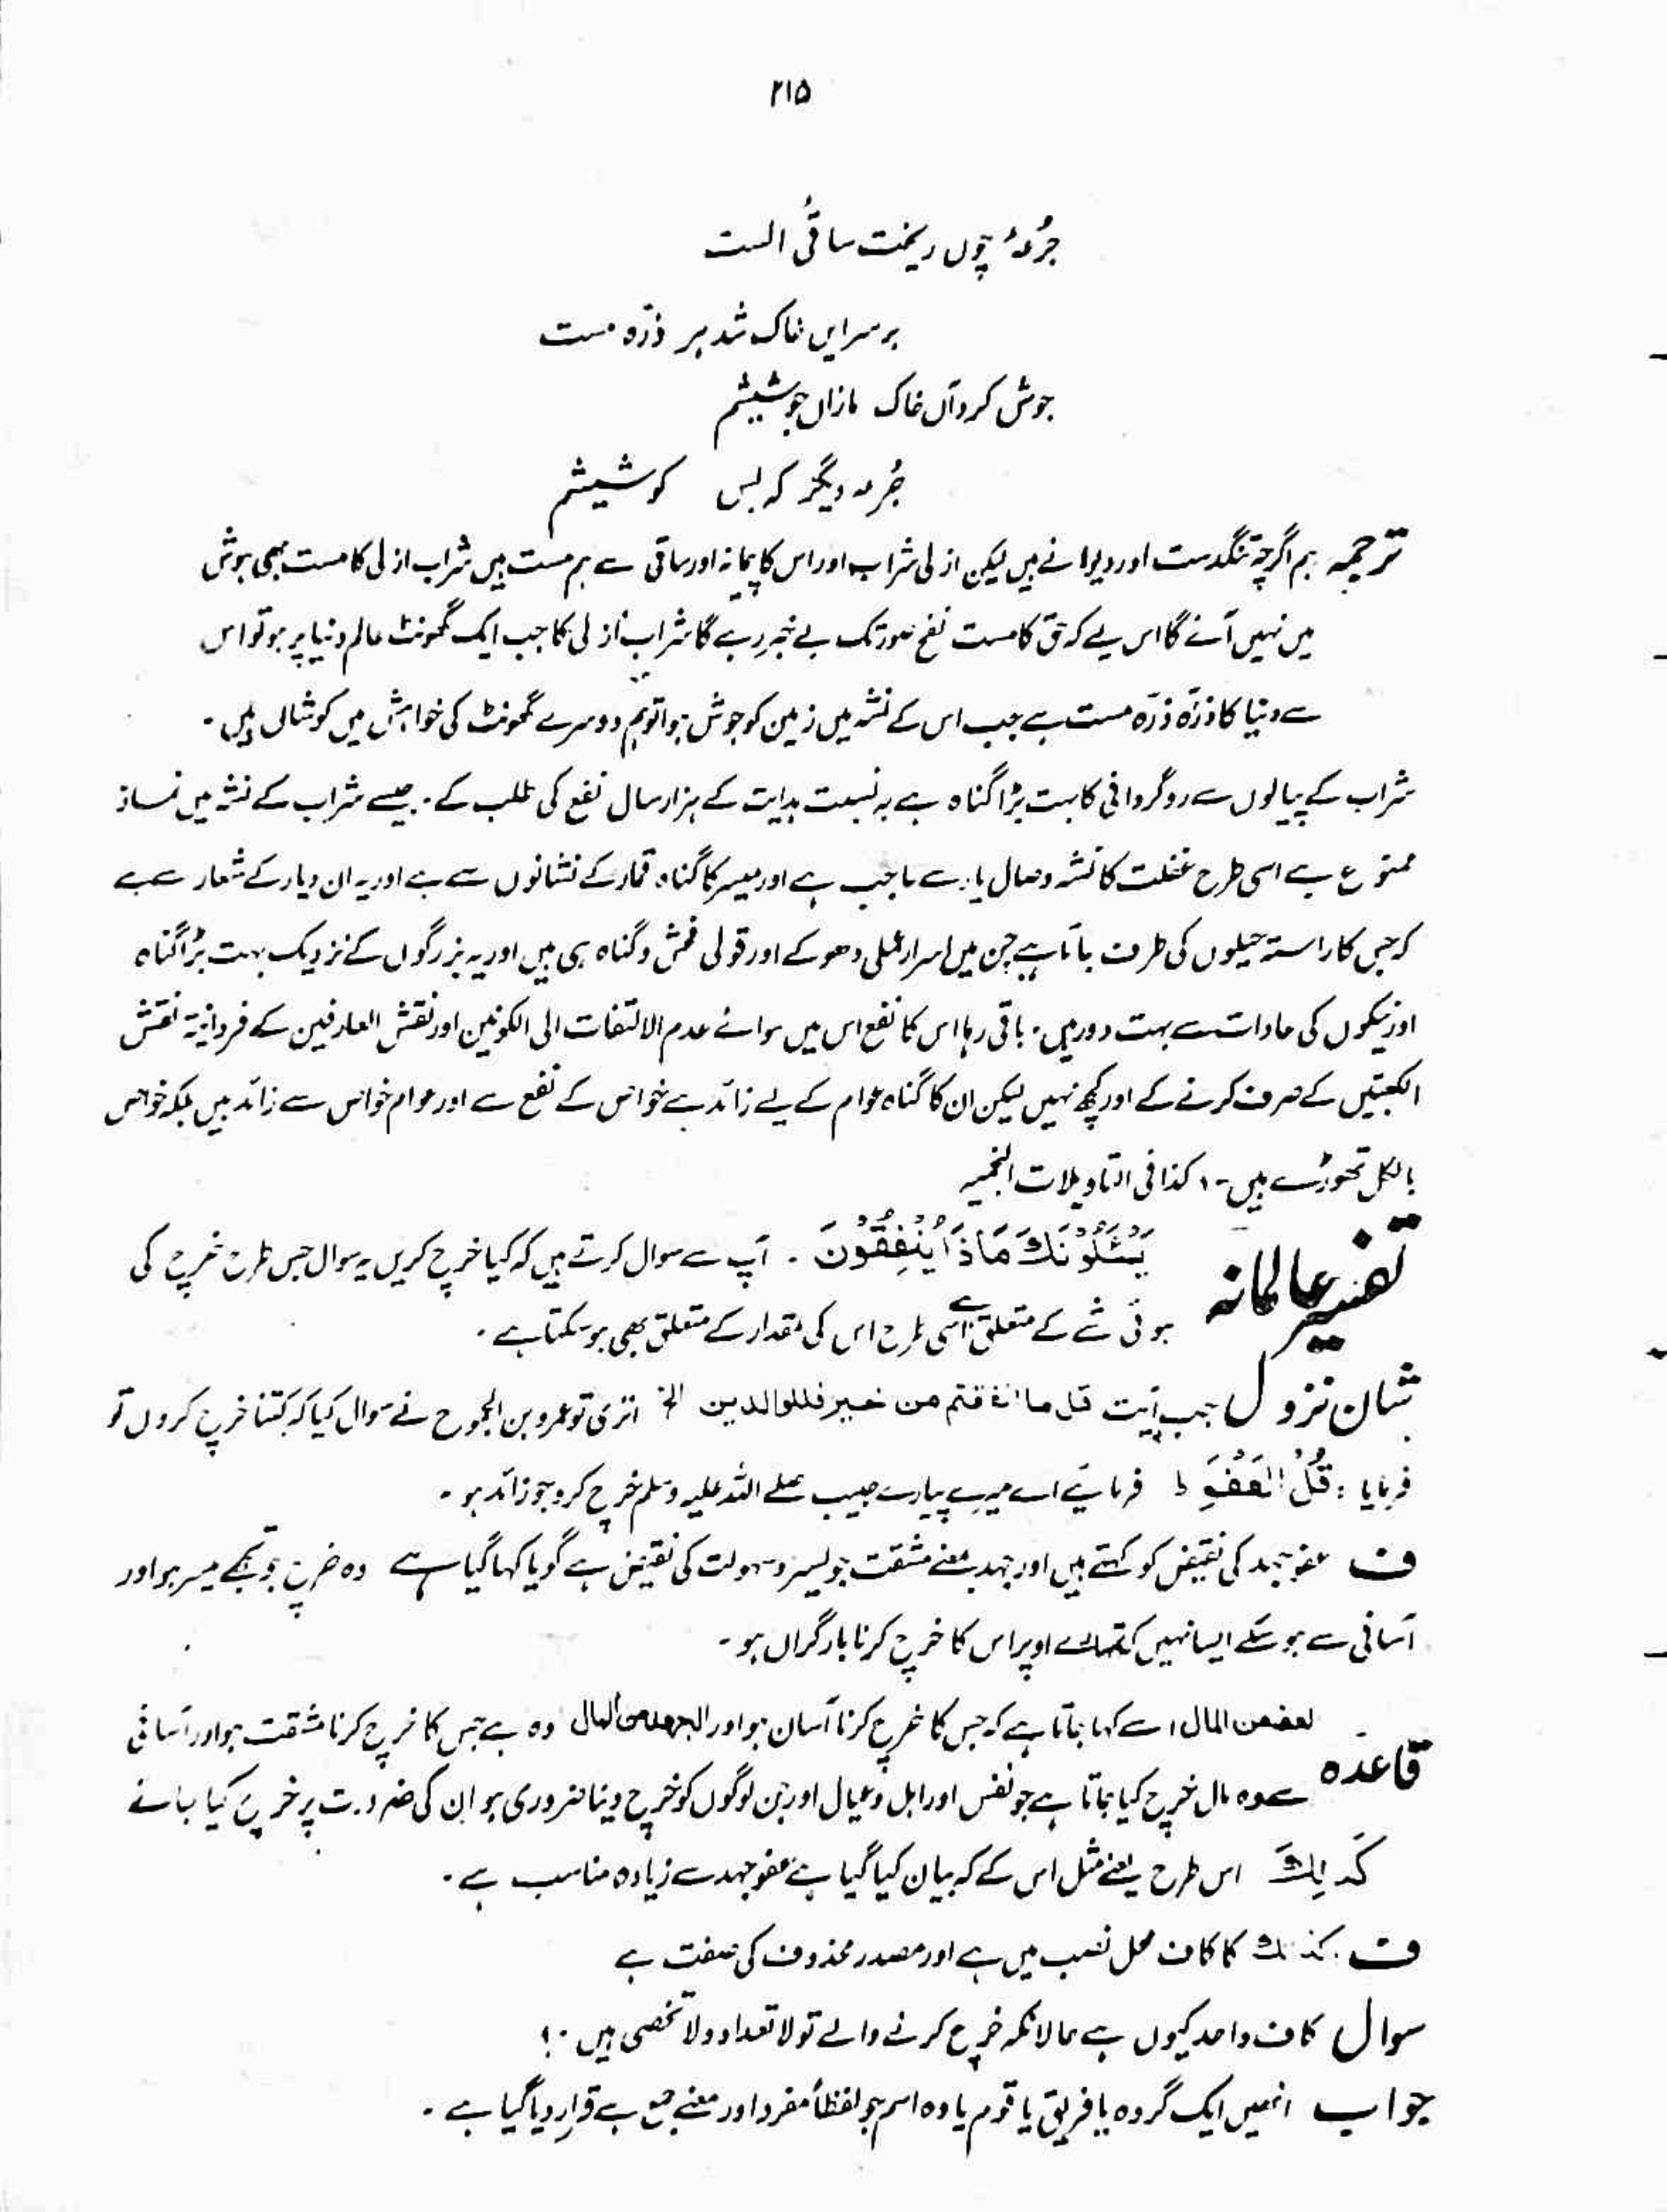 ۲۱۵
جُرعۂ چوں ریخت ساقیُ الست
بر سر ایں خاک شد ہر ذرّہ مست
جوش کرد آں خاک مازاں جوششیم
جُرعہ دیگر کہ بس کوششیم
ترجمہ ہم اگرچہ تنگدست اور دیوانے ہیں لیکن ازلی شراب اور اس کا پیمانہ اور ساقی سے ہم مست ہیں شراب ازلی کا مست بھی ہوش
میں نہیں آئے گا اس لیے کہ حق کا مست نفخ صور تک بے خبر رہے گا شراب ازلی کا جب ایک گھونٹ عالم دنیا پر ہو تو اس
سے دنیا کا ذرّہ ذرّہ مست ہے جب اس کے نشہ میں زمین کو جوش ہوا تو ہم دوسرے گھونٹ کی خواہش میں کوشاں ہیں ۔
شراب کے پیالوں سے روگردانی کا بہت بڑا گناہ ہے بہ نسبت ہدایت کے ہزار سال نفع کی طلب کے ۔ جیسے شراب کے نشہ میں نماز
ممنوع ہے اسی طرح غفلت کا نشہ وصال یار سے حاجب ہے اور میسر کا گناہ قمار کے نشانوں سے ہے اور یہ ان دیار کے شعار سے ہے
کہ جس کا راستہ حیلوں کی طرف جاتا ہے جن میں اسرار عملی دھوکے اور قولی فحش و گناہ ہی ہیں اور یہ بزرگوں کے نزدیک بہت بڑا گناہ
اور نیکوں کی عادات سے بہت دور ہیں ۔ باقی رہا اس کا نفع اس میں سوائے عدم الالتفات الی الکونین اور نقش العارفین کے فردانیۃ نقش
الکعبتیں کے صرف کرنے کے اور کچھ نہیں لیکن ان کا گناہ عوام کے لیے زائد ہے خواص کے نفع سے اور عوام خواص سے زائد ہیں بلکہ خواص
بالکل تھوڑے ہیں ۔ کذا فی التاویلات النجمیہ
تفسیر عالمانہ يَسْئَلُوْنَكَ مَاذَا يُنْفِقُوْنَ ۔ آپ سے سوال کرتے ہیں کہ کیا خرچ کریں یہ سوال جس طرح خرچ کی
ہوئی شے کے متعلق ہے اسی طرح اس کی مقدار کے متعلق بھی ہو سکتا ہے ۔
شان نزول جب آیت قل ما انفقتم من خیر فللوالدین الخ اتری تو عمرو بن الجموح نے سوال کیا کہ کتنا خرچ کروں تو
فرمایا : قُلِ الْعَفْوَ ط فرمائیے اے میرے پیارے حبیب صلے اللہ علیہ وسلم خرچ کرو جو زائد ہو ۔
ف عفو جہد کی نقیض کو کہتے ہیں اور جہد بمعنے مشقت جو یسر و سہولت کی نقیض ہے گویا کہا گیا ہے وہ خرچ جو تجھے میسر ہو اور
آسانی سے ہو سکے ایسا نہیں کہ تمہارے اوپر اس کا خرچ کرنا بار گراں ہو ۔
قاعدہ العفو من المال اسے کہا جاتا ہے کہ جس کا خرچ کرنا آسان ہو اور الجہد من المال وہ ہے جس کا خرچ کرنا مشقت ہو اور آسانی
سے وہ مال خرچ کیا جاتا ہے جو نفس اور اہل و عیال اور جن لوگوں کو خرچ دینا ضروری ہو ان کی ضرورت پر خرچ کیا جائے
كَذٰلِكَ اس طرح یعنے مثل اس کے کہ بیان کیا گیا ہے عفو جہد سے زیادہ مناسب ہے ۔
ف کذلك کا کاف محل نصب میں ہے اور مصدر محذوف کی صفت ہے
سوال کاف واحد کیوں ہے حالانکہ خرچ کرنے والے تو لا تعداد ولا تحصی ہیں ۔؟
جواب انھیں ایک گروہ یا فریق یا قوم یا وہ اسم جو لفظاً مفرد اور معنے جمع ہے قرار دیا گیا ہے ۔